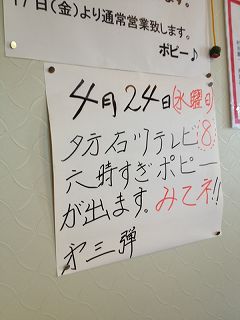 17日(金)より通常営業致します。
ポピー♪
4月24日(水曜日)
夕方石川テレビ8
六時すぎポピー
が出ます。みてネ!!
才三弾